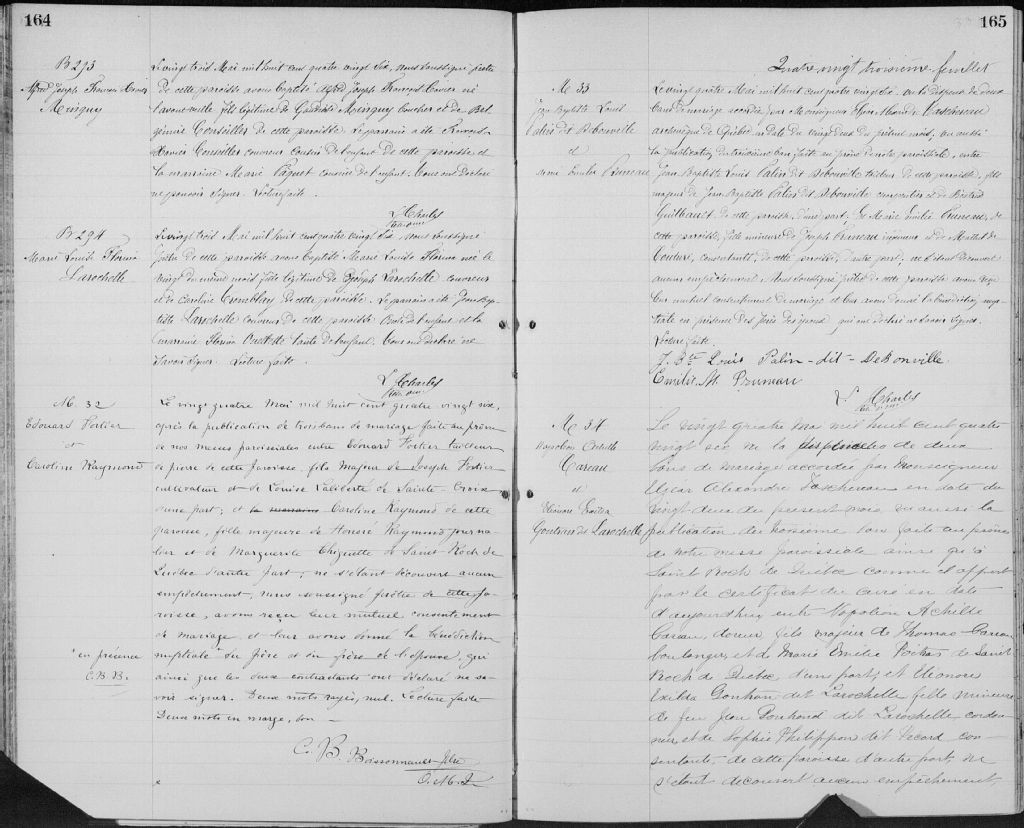 164
B 293
Alfred Joseph François Xavier
Minguy
Le vingt trois Mai mil huit cent quatre vingt six, nous soussigné prêtre
de cette paroisse avons baptisé Alfred Joseph François Xavier né
fils légitime de Minguy boucher et de
de cette paroisse. Le parrain a été François
Xavier couvreur cousin de l'enfant de cette paroisse et
la marraine Marie Paquet cousine de l'enfant. Tous ont déclaré
ne pouvoir signer. Lecture faite.
L. Charles
B 294
Marie Louise Florida
Larochelle
Le vingt trois Mai mil huit cent quatre vingt six, nous soussigné
prêtre de cette paroisse avons baptisé Marie Louise née le
vingt du même mois fille légitime de Joseph Larochelle couvreur
et de Caroline Tremblay de cette paroisse. Le parrain a été Jean Bap-
tiste Larochelle couvreur de cette paroisse oncle de l'enfant et la
marraine tante de l'enfant. Tous ont déclaré ne
savoir signer. Lecture faite.
L. Charles
M. 32
Edouard Fortier
et
Caroline Raymond
Le vingt quatre Mai mil huit cent quatre vingt six,
après la publication de trois bans de mariage faite au prône
de nos messes paroissiales entre Edouard Fortier tailleur
de pierre de cette paroisse, fils majeur de Joseph Fortier
cultivateur et de Louise Laliberté de Sainte-Croix
d'une part; et Caroline Raymond de cette
paroisse, fille majeure de Honoré Raymond journa-
lier et de Marguerite Chiquette de Saint-Roch de
Québec d'autre part; ne s'étant découvert aucun
empêchement, nous soussigné prêtre de cette pa-
roisse, avons reçu leur mutuel consentement
de mariage, et leur avons donné la bénédiction
nuptiale du père et du frère de l'épouse, qui
ainsi que les deux contractants ont déclaré ne sa-
voir signer. Deux mots rayés, nul. Lecture faite
Deux mots en marge, bon —
"en présence
C. B. B.
C. B. Boissonnault Ptre
O. M. I.
165
Quatre vingt troisième feuillet
M 33
Jean Baptiste Louis
Palin dit Debonville
et
Marie Emilie Pruneau
Le vingt quatre Mai mil huit cent quatre vingt six, vu la dispense de deux
bans de mariage accordée par Monseigneur Taschereau
archevêque de Québec en date du vingt deux du présent mois, vu aussi
la publication du troisième ban faite au prône de notre paroissiale, entre
Jean Baptiste Louis Palin dit Debonville de cette paroisse, fils
majeur de Jean Baptiste Palin dit Debonville et de
Guilbault de cette paroisse, d'une part; et Marie Emilie Pruneau, de
cette paroisse, fille mineure de Joseph Pruneau et de
Couture, consentants, de cette paroisse, d'autre part; ne s'étant découvert
aucun empêchement. Nous soussigné prêtre de cette paroisse avons reçu
leur mutuel consentement de mariage et leur avons donné la bénédiction nup-
tiale en présence des qui ont déclaré ne savoir signer.
Lecture faite.
J. Bte Louis Palin - dit - DeBonville
Emilie M. Pruneau
L. Charles
M 34
Napoléon Achille
Careau
et
Eléonore Exilda
Gontrand dit Larochelle
Le vingt quatre Mai mil huit cent quatre
vingt six vu la dispense de deux
bans de mariage accordée par Monseigneur
Elzéar Alexandre Taschereau en date du
vingt deux du présent mois vu aussi la
publication du troisième ban faite au prône
de notre messe paroissiale ainsi qu'à
Saint Roch de Québec comme il appert
par le certificat du curé en date
d'aujourd'hui entre Napoléon Achille
Careau, doreur fils majeur de Thomas Careau
boulanger, et de Marie Emélie de Saint
Roch de Québec d'une part; et Eléonore
Exilda dit Larochelle fille mineure
de feu Jean dit Larochelle cordon-
nier, et de Sophie Philippon dit Picard con-
sentante, de cette paroisse d'autre part, ne
s'étant découvert aucun empêchement,